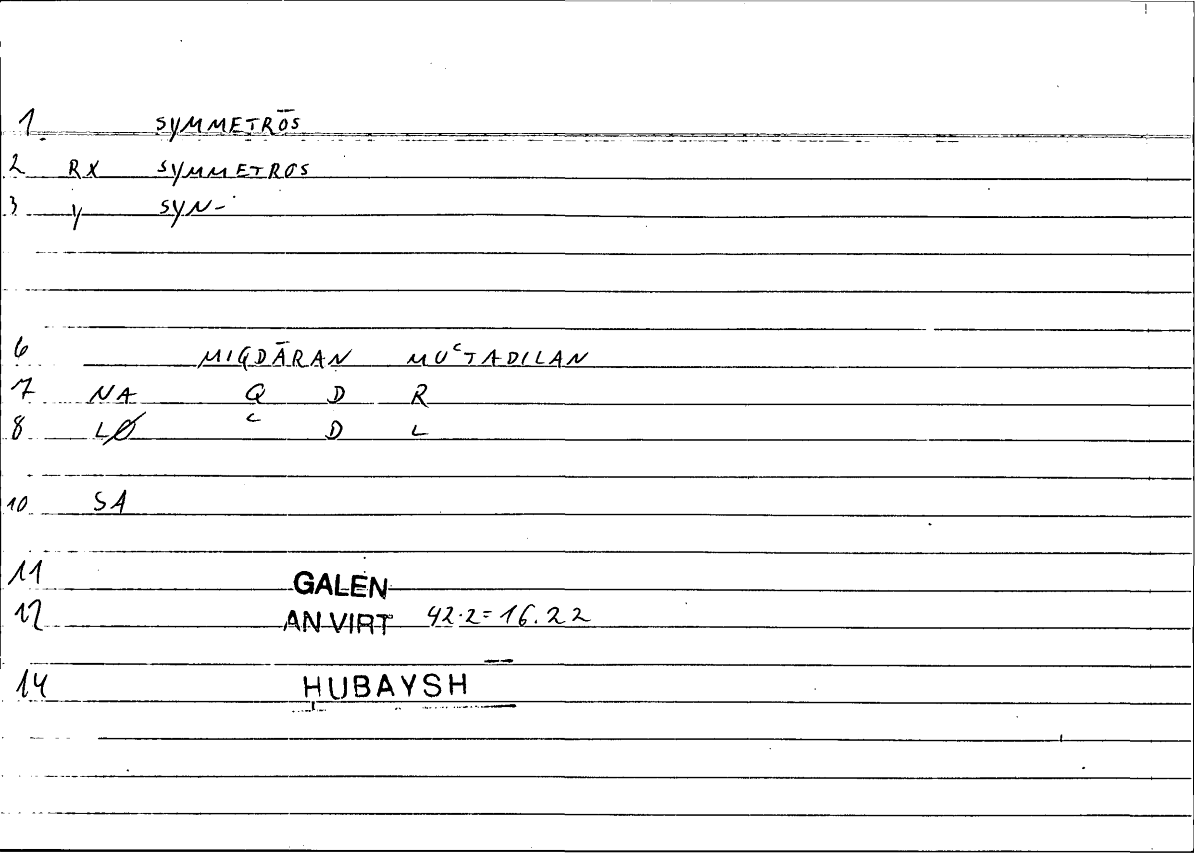 1 SYMMETRŌS
2 RX SYMMETROS
3 Y SYN-
6 MIQDĀRAN MUᶜTADILAN
7 NA Q D R
8 LØ ᶜ D L
10 SA
11 GALEN
12 AN VIRT 42.2=16.22
14 HUBAYSH